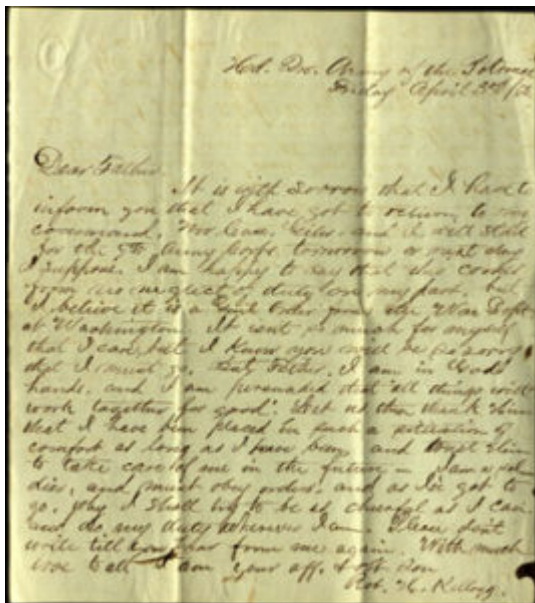 Hd. Pro. Army of the Potomac
Friday April 3rd /63
Dear Father
It is with sorrow that I have to
inform you that I have got to return to my
command, and it will start
for the 9th Army Corps tomorrow or next day
I suppose. I am happy to say that this comes
from no neglect of duty on my part, but
I believe it is a order from the War Dept.
at Washington. It isnt so much for myself
that I care, but I know you will be so sorry
that I must go. But Father, I am in Gods'
hands, and I am persuaded that "all things will
work together for good". Let us then thank Him
that I have been placed in such a situation of
comfort as long as I have been, and trust Him
to take care of me in the future – I am a sol
dier, and must obey orders, and as I've got to
go, why I shall try to be as cheerful as I can
and do my duty wherever I am. Please dont
write till you hear from me again. With much
love to all I am your aff. son
Rob. H. Kellogg.